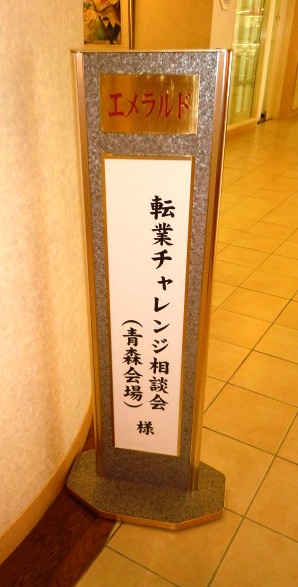 エメラルド
転業チャレンジ相談会
(青森会場) 様